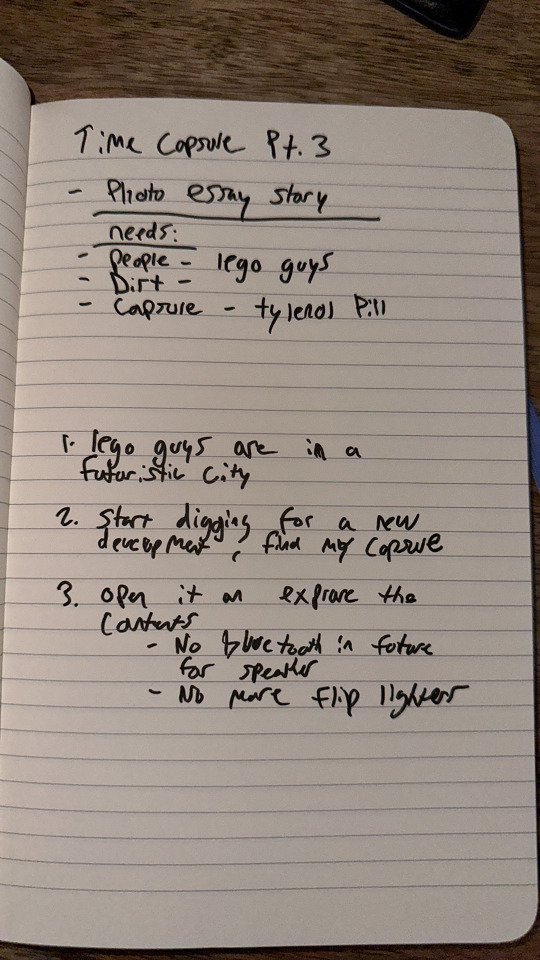 Time Capsule Pt. 3
- Photo essay story
needs:
- People - lego guys
- Dirt -
- Capsule - tylenol Pill
1. lego guys are in a
futuristic city
2. Start digging for a new
development, find my capsule
3. open it an explore the
Contents
- No bluetooth in future
for speaker
- No more flip lighters